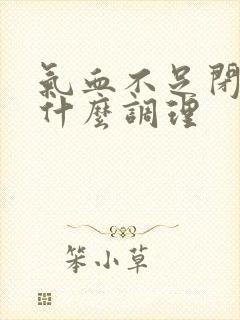 氣血不足閉
什麼調理
笨小草